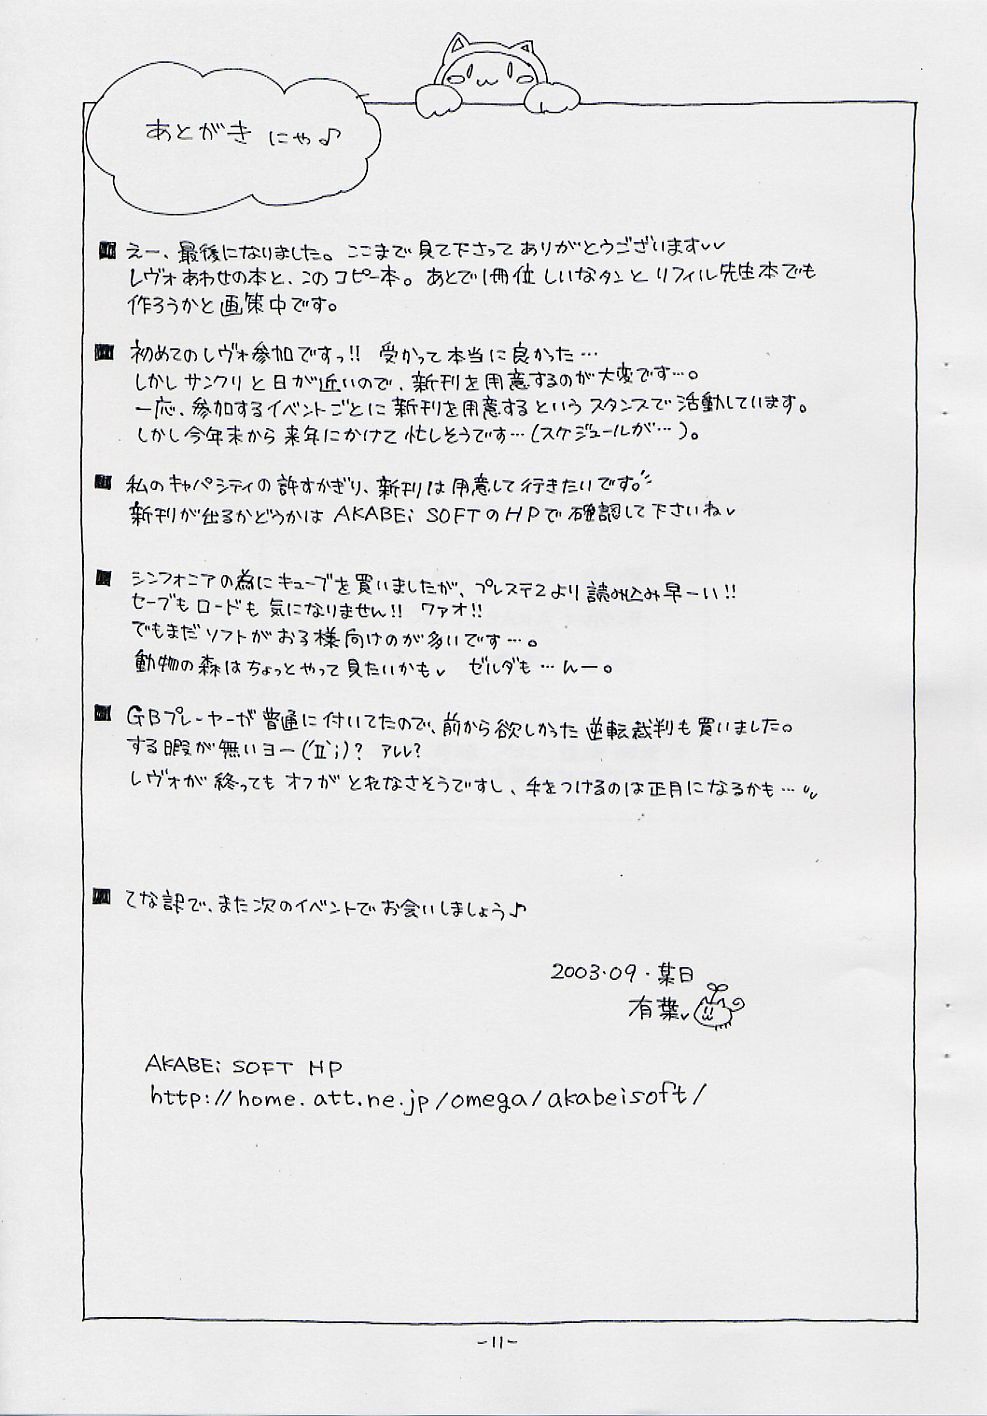 あとがき にゃ♪
■ えー、最後になりました。ここまで見て下さってありがとうございます♥♥
レヴォあわせの本と、このコピー本。あとで1冊位しいなタンとリフィル先生本でも
作ろうかと画策中です。
■ 初めてのレヴォ参加ですっ!! 受かって本当に良かった…
しかしサンクリと日が近いので、新刊を用意するのが大変です…。
一応、参加するイベントごとに新刊を用意するというスタンスで活動しています。
しかし今年末から来年にかけて忙しそうです…(スケジュールが…)。
■ 私のキャパシティの許すかぎり、新刊は用意して行きたいです。
新刊が出るかどうかは AKABEi SOFTのHPで確認して下さいね♥
■ シンフォニアの為にキューブを買いましたが、プレステ2より読み込み早ーい!!
セーブもロードも気になりません!! ワァオ!!
でもまだソフトがお子様向けのが多いです…。
動物の森はちょっとやって見たいかも♥ ゼルダも…んー。
■ GBプレーヤーが普通に付いてたので、前から欲しかった逆転裁判も買いました。
する暇が無いヨー(´Д`;)? アレレ?
レヴォが終ってもオフがとれなさそうですし、手をつけるのは正月になるかも…
■ てな訳で、また次のイベントでお会いしましょう♪
2003・09・某日
有葉♥
AKABEi SOFT HP
http://home.att.ne.jp/omega/akabeisoft/
-11-